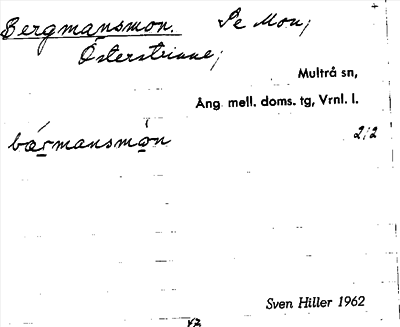 Bergmansmon. Se Mon,
Österstrinne,
Multrå sn,
Ång. mell. doms. tg, Vrnl. l.
2:2
bær̲mansmo̲n
Sven Hiller 1962